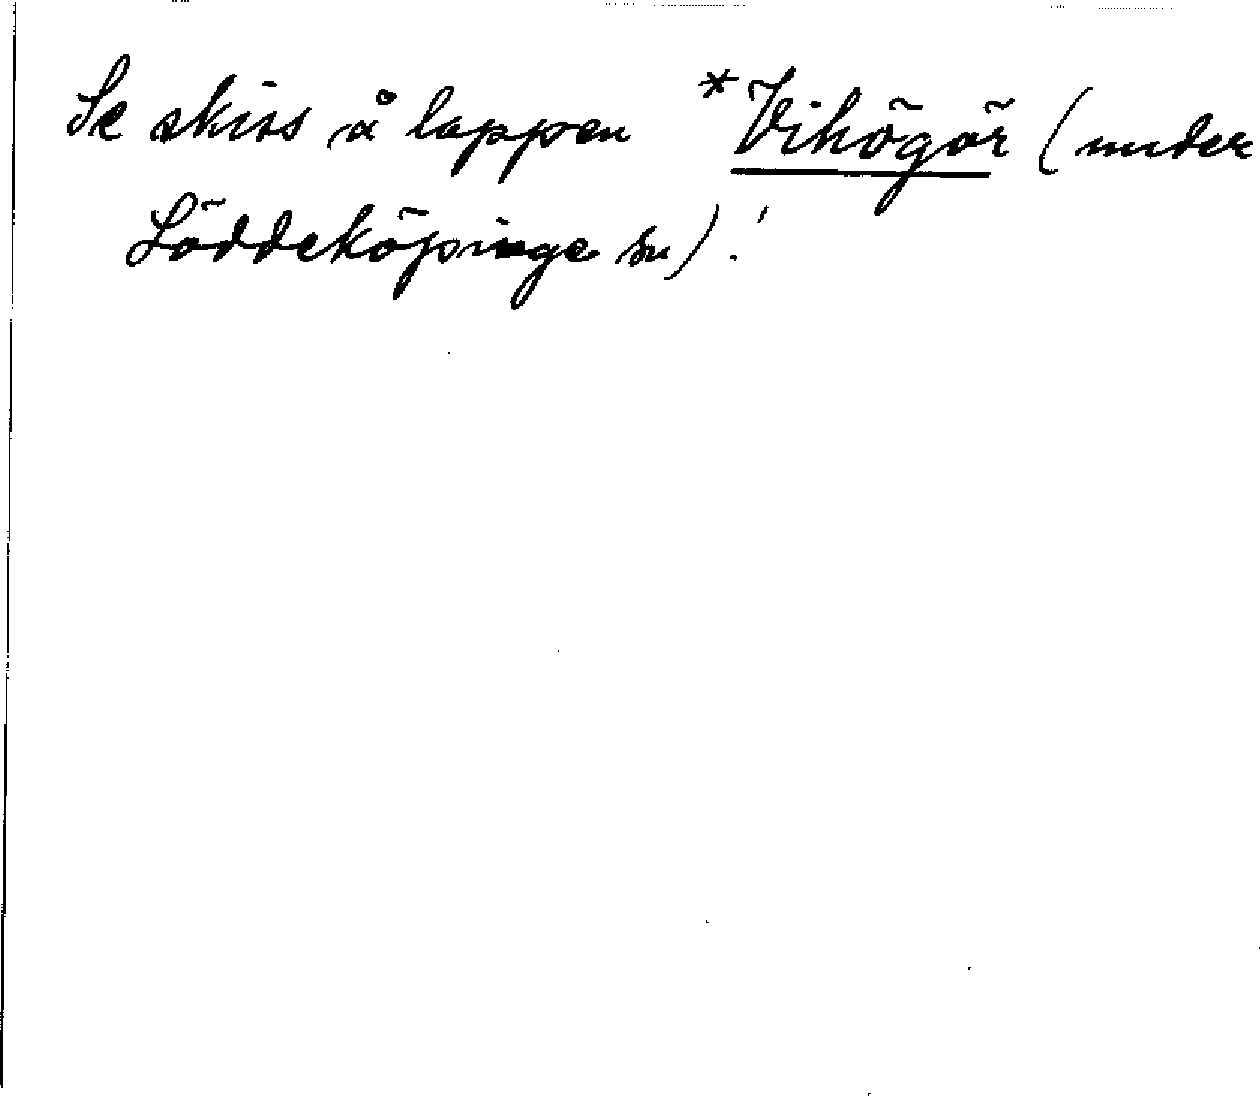 Se skiss å lappen *Vihögör (under
Löddeköpinge sn).'